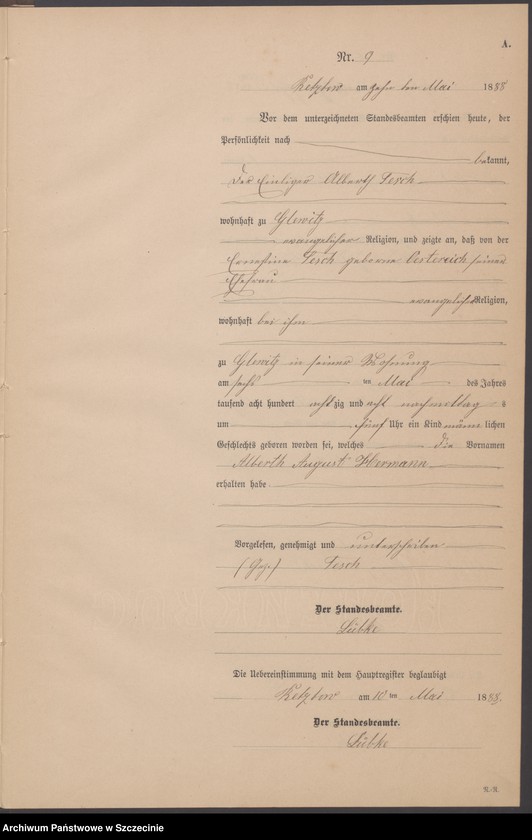 A.
Nr. 9
Retzow am zehn ten Mai 1888
Vor dem unterzeichneten Standesbeamten erschien heute, der
Persönlichkeit nach
bekannt,
der Albert Lerch
wohnhaft zu Glewitz
evangelischer Religion, und zeigte an, daß von der
Ernestine Lerch geborne Oestereich seiner
Ehefrau
evangelischer Religion,
wohnhaft bei ihm
zu Glewitz in seiner Wohnung
am sechs ten Mai des Jahres
tausend acht hundert achtzig und acht nachmittag s
um fünf Uhr ein Kind männlichen
Geschlechts geboren worden sei, welches die Vornamen
Alberth August Hermann
erhalten habe
Vorgelesen, genehmigt und unterschrieben
(Gez.) Lerch
Der Standesbeamte.
Lübke
Die Uebereinstimmung mit dem Hauptregister beglaubigt
Retzow am 10 ten Mai 1888.
Der Standesbeamte.
Lübke
Archiwum Państwowe w Szczecinie